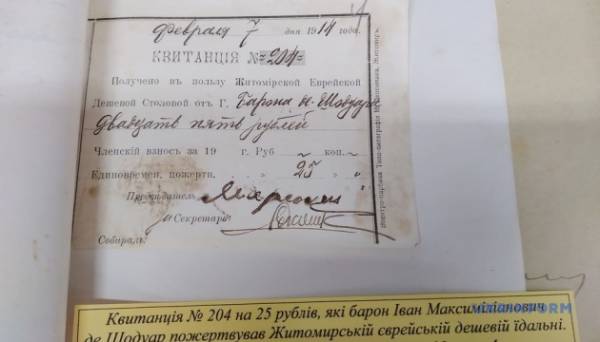 Февраля 7 дня 1914 года
КВИТАНЦІЯ № 204
Получено въ пользу Житомірской Еврейской
Дешевой Столовой отъ Г. Барона де Шодуара
Двадцать пять рублей
Членскій взносъ за 19 г. Руб „ коп „
Единовремен. пожертв. „ 25 „ „
Предсѣдатель
Секретарь
Собиралъ:
Квитанція № 204 на 25 рублів, які барон Іван Максиміліанович
де Шодуар пожертвував Житомирській єврейській дешевій їдальні.
UKRINFORM